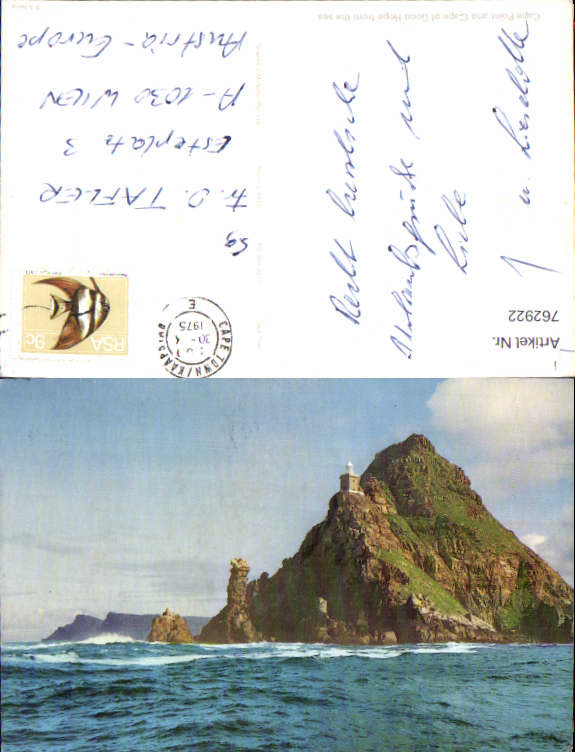 Cape Point and Cape of Good Hope from the sea
Recht herzliche
Urlaubsgrüße und
Liebe
u. Lieselotte
Sg
Fr. D. TAFLER
Esteplatz 3
A-1030 WIEN
Austria - Europe
RSA
9c
CAPE TOWN/KAAPSTAD
1975
E
Artikel Nr.
762922